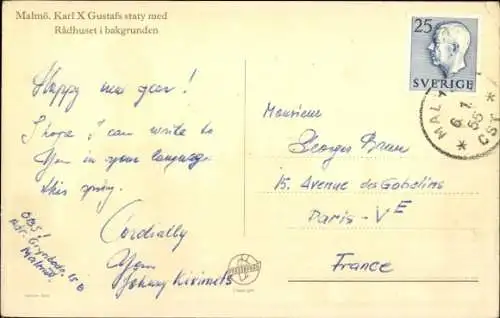 Malmö. Karl X Gustafs staty med
Rådhuset i bakgrunden
Happy new year!
I hope I can write to
You in your language
this spring.
Cordially
Your
Johnny
OBS!
Adr.
15 B
Malmö
25
SVERIGE
MAL
6. 1.
55
CST
Monsieur
Georges Brun
15. Avenue des Gobelins
Paris-Vᴱ
France